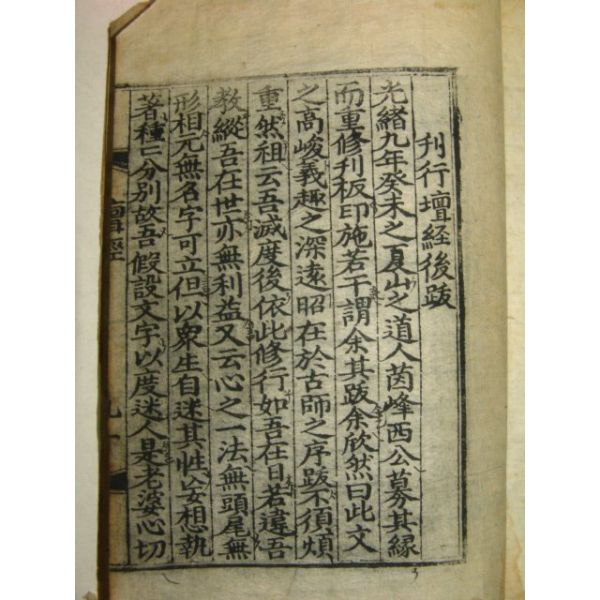 刊行壇経後跋
光緒九年癸未之夏山之道人茵峰西公募其縁
而重修刊板印施若干謂余其跋余欣然曰此文
之高峻義趣之深遠昭在於古師之序跋不須煩
重然祖云吾滅度後依此修行如吾在日若違吾
教縱吾在世亦無利益又云心之一法無頭尾無
形相元無名字可立但以衆生自迷其性妄想執
著種〻分別故吾假設文字以度迷人是老婆心切
壇經
九一